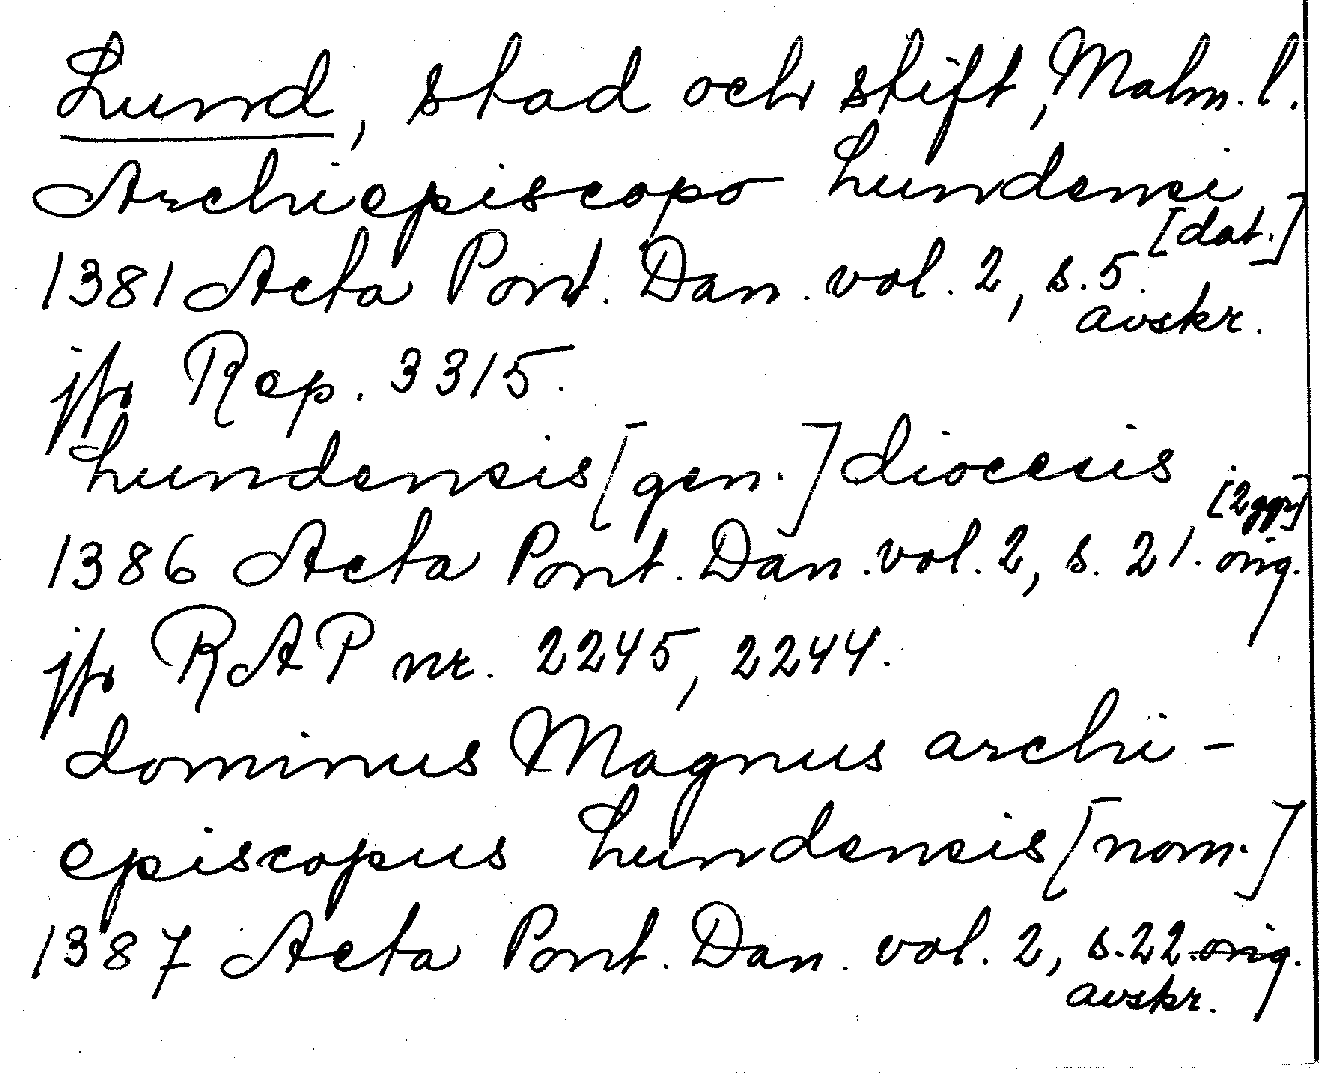 Lund, stad och stift, Malm. l.
Archiepiscopo Lundensi
[dat.]
1381 Acta Pont. Dan. vol. 2, s. 5.
avskr.
jfr Rep. 3315.
Lundensis [gen.] diocesis
[2 ggr]
1386 Acta Pont. Dan. vol. 2, s. 21. orig.
jfr RAP nr. 2245, 2244.
dominus Magnus archi-
episcopus Lundensis [nom.]
1387 Acta Pont. Dan. vol. 2, s. 22. orig.
avskr.